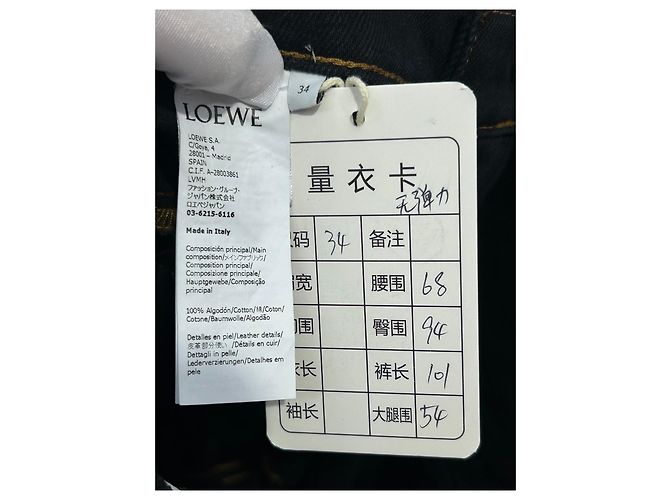 34
LOEWE
LOEWE S.A.
C/Goya, 4
28001 - Madrid
SPAIN
C.I.F. A-28003861
LVMH
ファッション・グループ・
ジャパン株式会社
ロエベジャパン
03-6215-6116
Made in Italy
Composición principal/Main
composition/メインファブリック/
Composition principal/
Composizione principale/
Hauptgewebe/Composição
principal
100% Algodón/Cotton/綿/Coton/
Cotone/Baumwolle/Algodão
Detalles en piel/Leather details/
皮革部分使い /Détails en cuir/
Dettagli in pelle/
Lederverzierungen/Detalhes em
pele
量衣卡
无弹力
码 34 备注
宽 腰围 68
围 臀围 94
长 裤长 101
袖长 大腿围 54